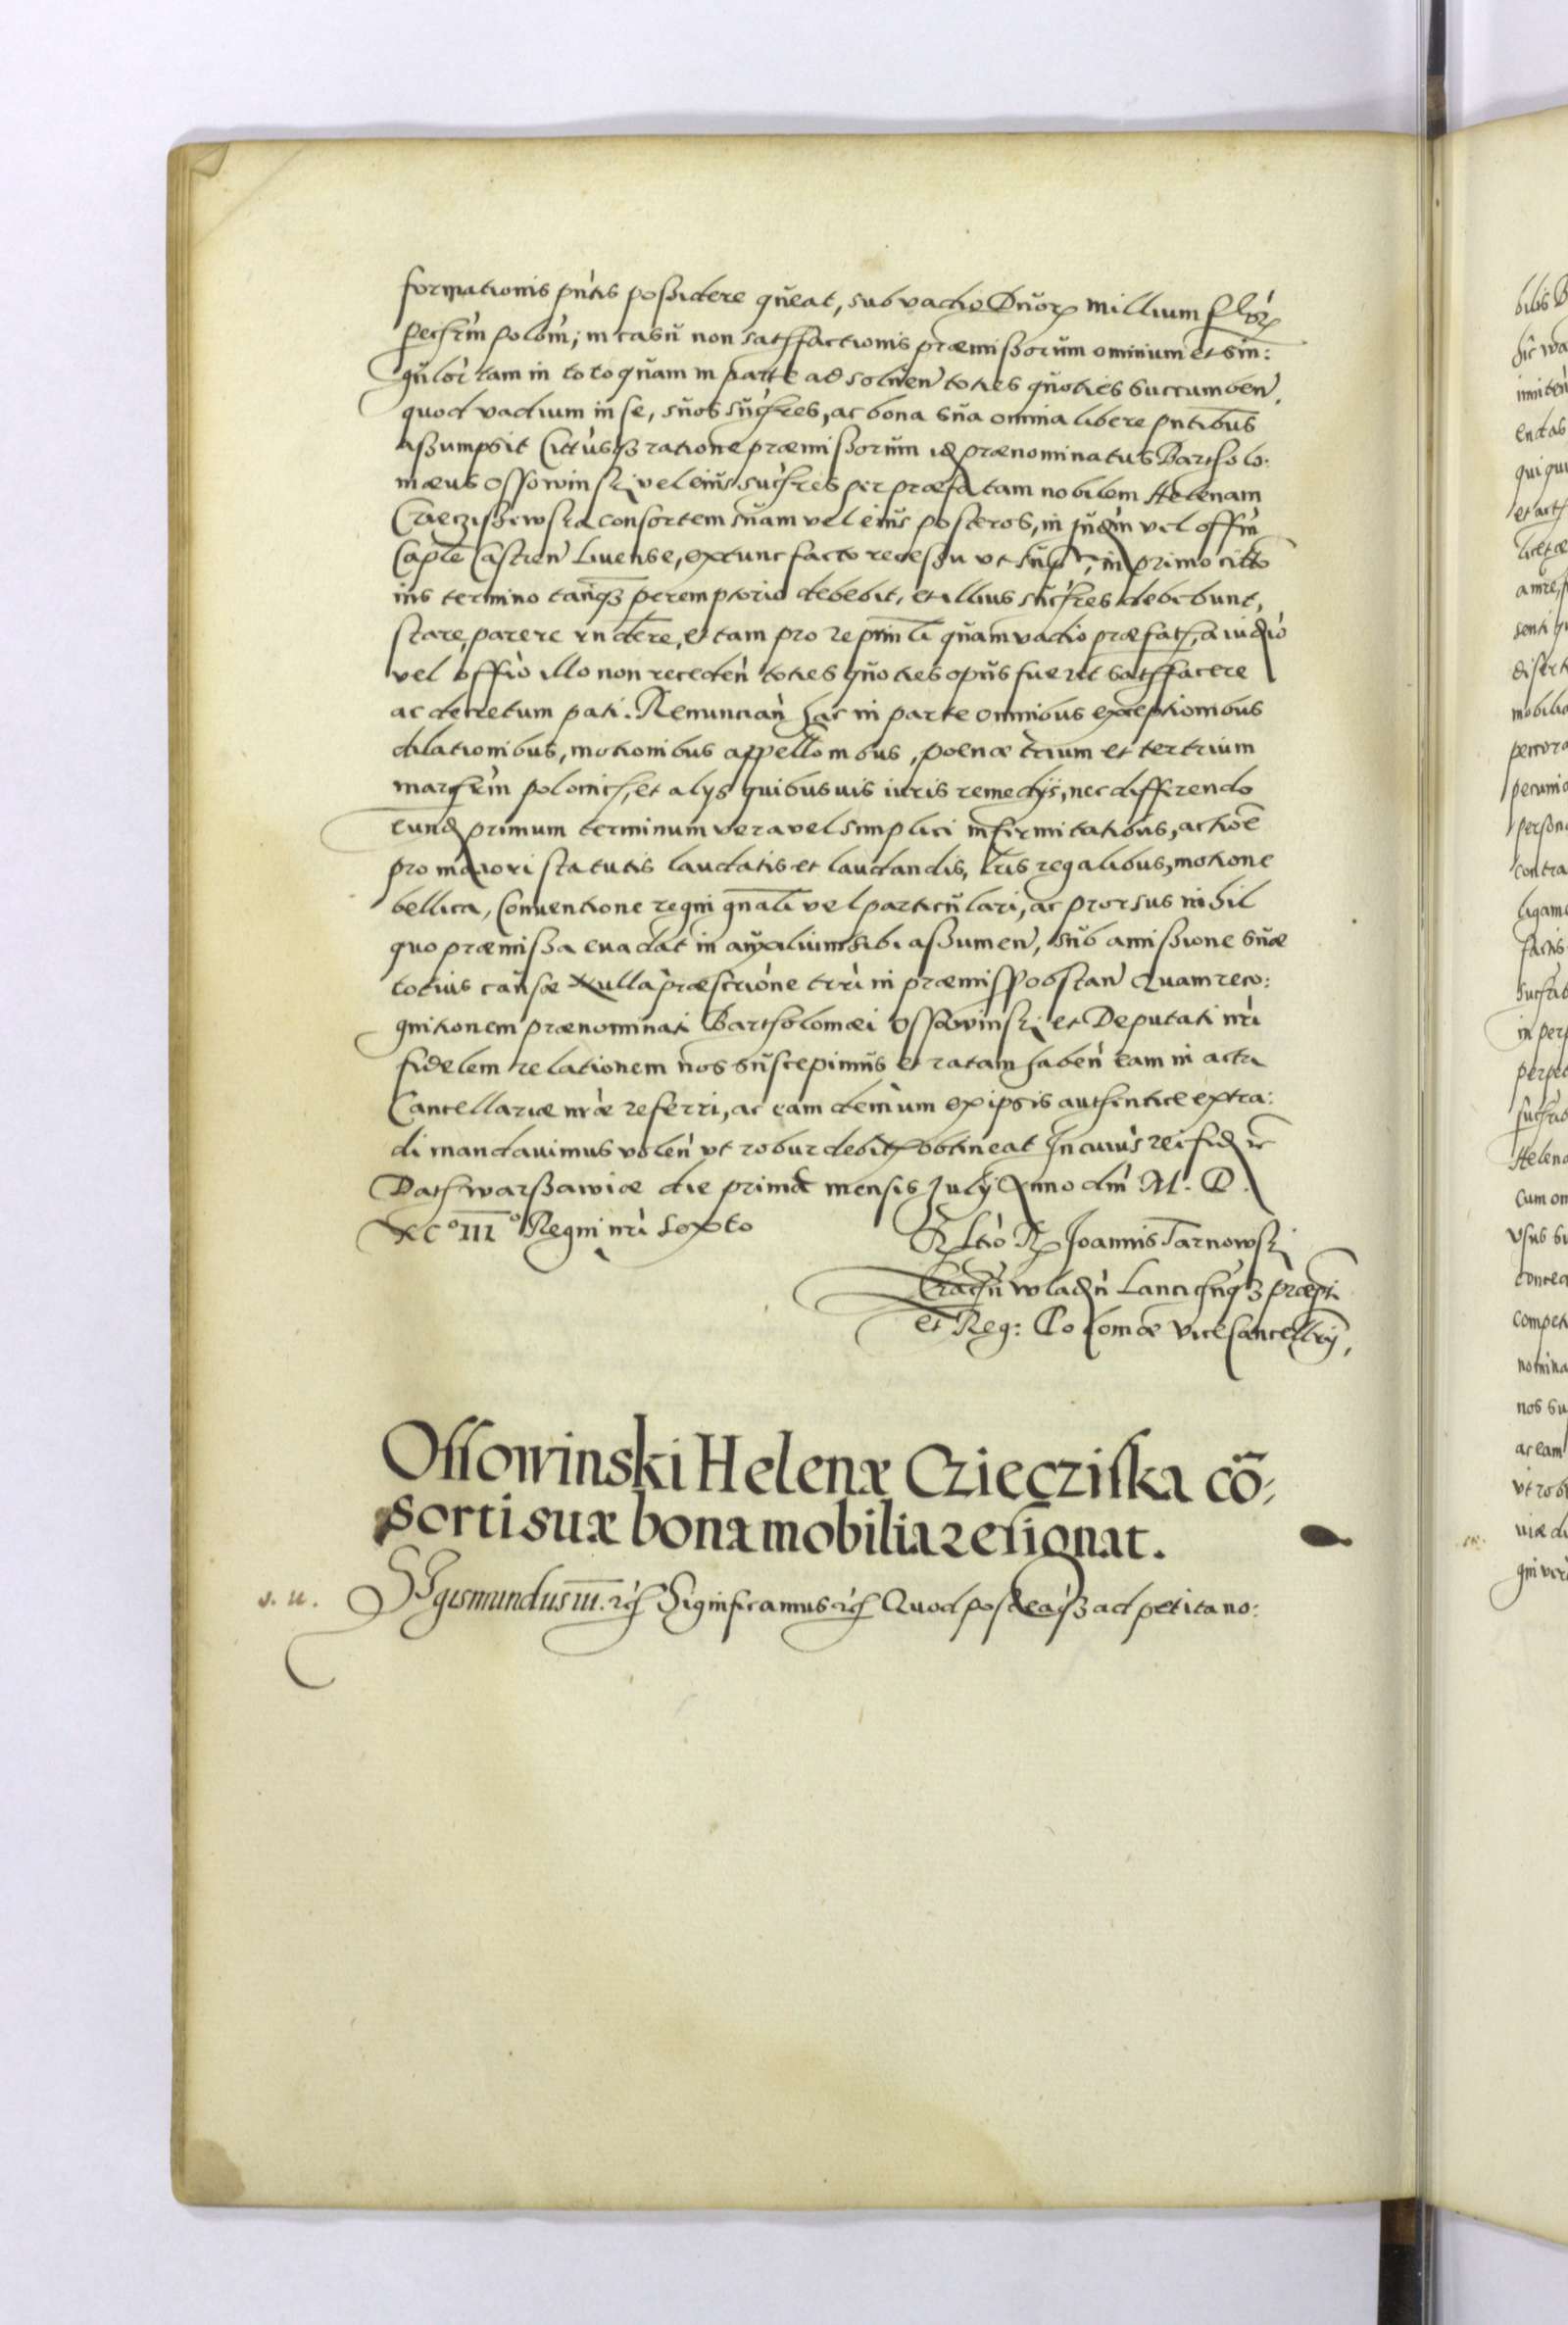 formationis pntis possidere queat, sub vadio Duor millium flor
pecun polon; in casu non satisfactionis præmissorum omnium et sin:
gulor tam in toto quam in parte ad solven toties quoties succumben,
quod vadium in se, suos succres, ac bona sua omnia libere pntibus
assumpsit Citusq ratione præmissorum id prænominatus Bartholo:
mæus Ossowinski vel eius succres per præfatam nobilem Helenam
Cziecziszewska consortem suam vel eius posteros, in judm vel offm
Caple Castren Livense, extunc facto recessu ut supr, in primo citto
nis termino tanq peremptorio debebit, et illius succres debebunt,
stare, parere rndere, et tam pro re prinli quam vadio præfat, a iudio
vel offio illo non receden toties quoties opus fuerit satisfacere
ac decretum pati. Renuncian hac in parte omnibus exceptionibus
dilationibus, motionibus appellombus, poenæ trium et tertrium
marcam polonic, et alys quibusvis iuris remedijs, nec differendo
eund primum terminum vera vel simplici infirmitatibus, actioe
pro maiori statutis laudatis et laudandis, lris regalibus, motione
bellica, Conventione regni gnali vel particulari, ac prorsus nihil
quo præmissa evadat in auxilium sibi assumen, sub amissione suæ
totius causæ nulla præscrione trri in præmiss obstan Quam reco:
gnitionem prænominati Bartholomæi Ossowinski et Deputati nri
fidelem relationem nos suscepimus et ratam haben eam in acta
Cancellariæ nræ referri, ac eam demum ex ipsis authentice extra:
di mandavimus volen ut robur debit obtineat In cuius rei fid rc
Dat Warssawiæ die prima mensis July Anno dm M. D.
XC° III° Regni nri Sexto
R ltio R Joannis Tarnowski
Cracn wladn Lancicnq præpti
et Reg: Poloniæ Vicecancellrij,
Ossowinski Helenæ Cziecziska cō,
sorti suæ bona mobilia resignat.
s. u. Sigismundus III. rc Significamus rc Quod posteaq ad petita no: